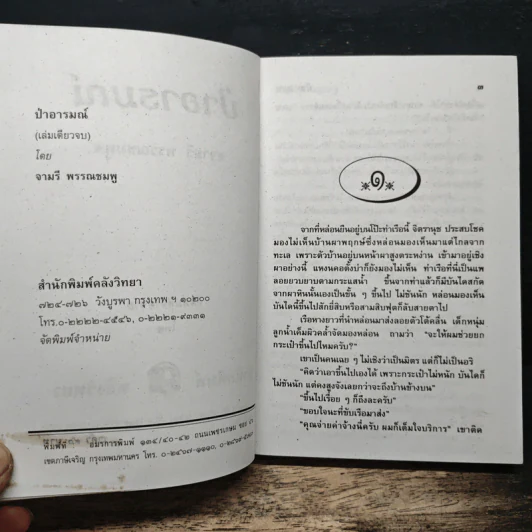 ป่าอารมณ์
(เล่มเดียวจบ)
โดย
จามรี พรรณชมพู
สำนักพิมพ์คลังวิทยา
๗๒๔-๗๒๖ วังบูรพา กรุงเทพ ฯ ๑๐๒๐๐
โทร.๐-๒๒๒๒-๔๕๔๖, ๐-๒๒๒๑-๙๓๓๑
จัดพิมพ์จำหน่าย
พิมพ์ที่ อมรการพิมพ์ ๑๓๔/๔๐-๔๒ ถนนเพชรเกษม ซอย
เขตภาษีเจริญ กรุงเทพมหานคร โทร. ๐-๒๔๖๗-๑๑๑๐,
๓
๑
จากที่หล่อนยืนอยู่บนโป๊ะท่าเรือนี้ จิตรานุช ประสบโชค
มองไม่เห็นบ้านผาพฤกษ์ซึ่งหล่อนมองเห็นมาแต่ไกลจาก
ทะเล เพราะตัวบ้านอยู่บนหน้าผาสูงตระหง่าน เข้ามาอยู่เชิง
ผาอย่างนี้ แหงนคอตั้งบ่าก็ยังมองไม่เห็น ท่าเรือที่นี่เป็นแพ
ลอยยวบยาบตามกระแสน้ำ ขึ้นจากท่าแล้วก็มีบันไดสกัด
จากผาหินนั้นเองเป็นชั้น ๆ ขึ้นไป ไม่ชันนัก หล่อนมองเห็น
บันไดนี้ขึ้นไปสักยี่สิบหรือสามสิบฟุตก็ลับสายตาไป
เรือหางยาวที่นำหล่อนมาส่งลอยตัวโต้คลื่น เด็กหนุ่ม
ลูกน้ำเค็มผิวคล้ำจัดมองหล่อน ถามว่า “จะให้ผมช่วยยก
กระเป๋าขึ้นไปไหมครับ?”
เขาเป็นคนเฉย ๆ ไม่เชิงว่าเป็นมิตร แต่ก็ไม่เป็นอริ
“คิดว่าเอาขึ้นไปเองได้ เพราะกระเป๋าไม่หนัก บันไดก็
ไม่ชันนัก แต่คงสูงจังเลยกว่าจะถึงบ้านข้างบน”
“ขึ้นไปเรื่อย ๆ ก็ถึงละครับ”
“ขอบใจนะที่ขับเรือมาส่ง”
“คุณจ่ายค่าจ้างนี่ครับ ผมก็เต็มใจบริการ” เขาติด